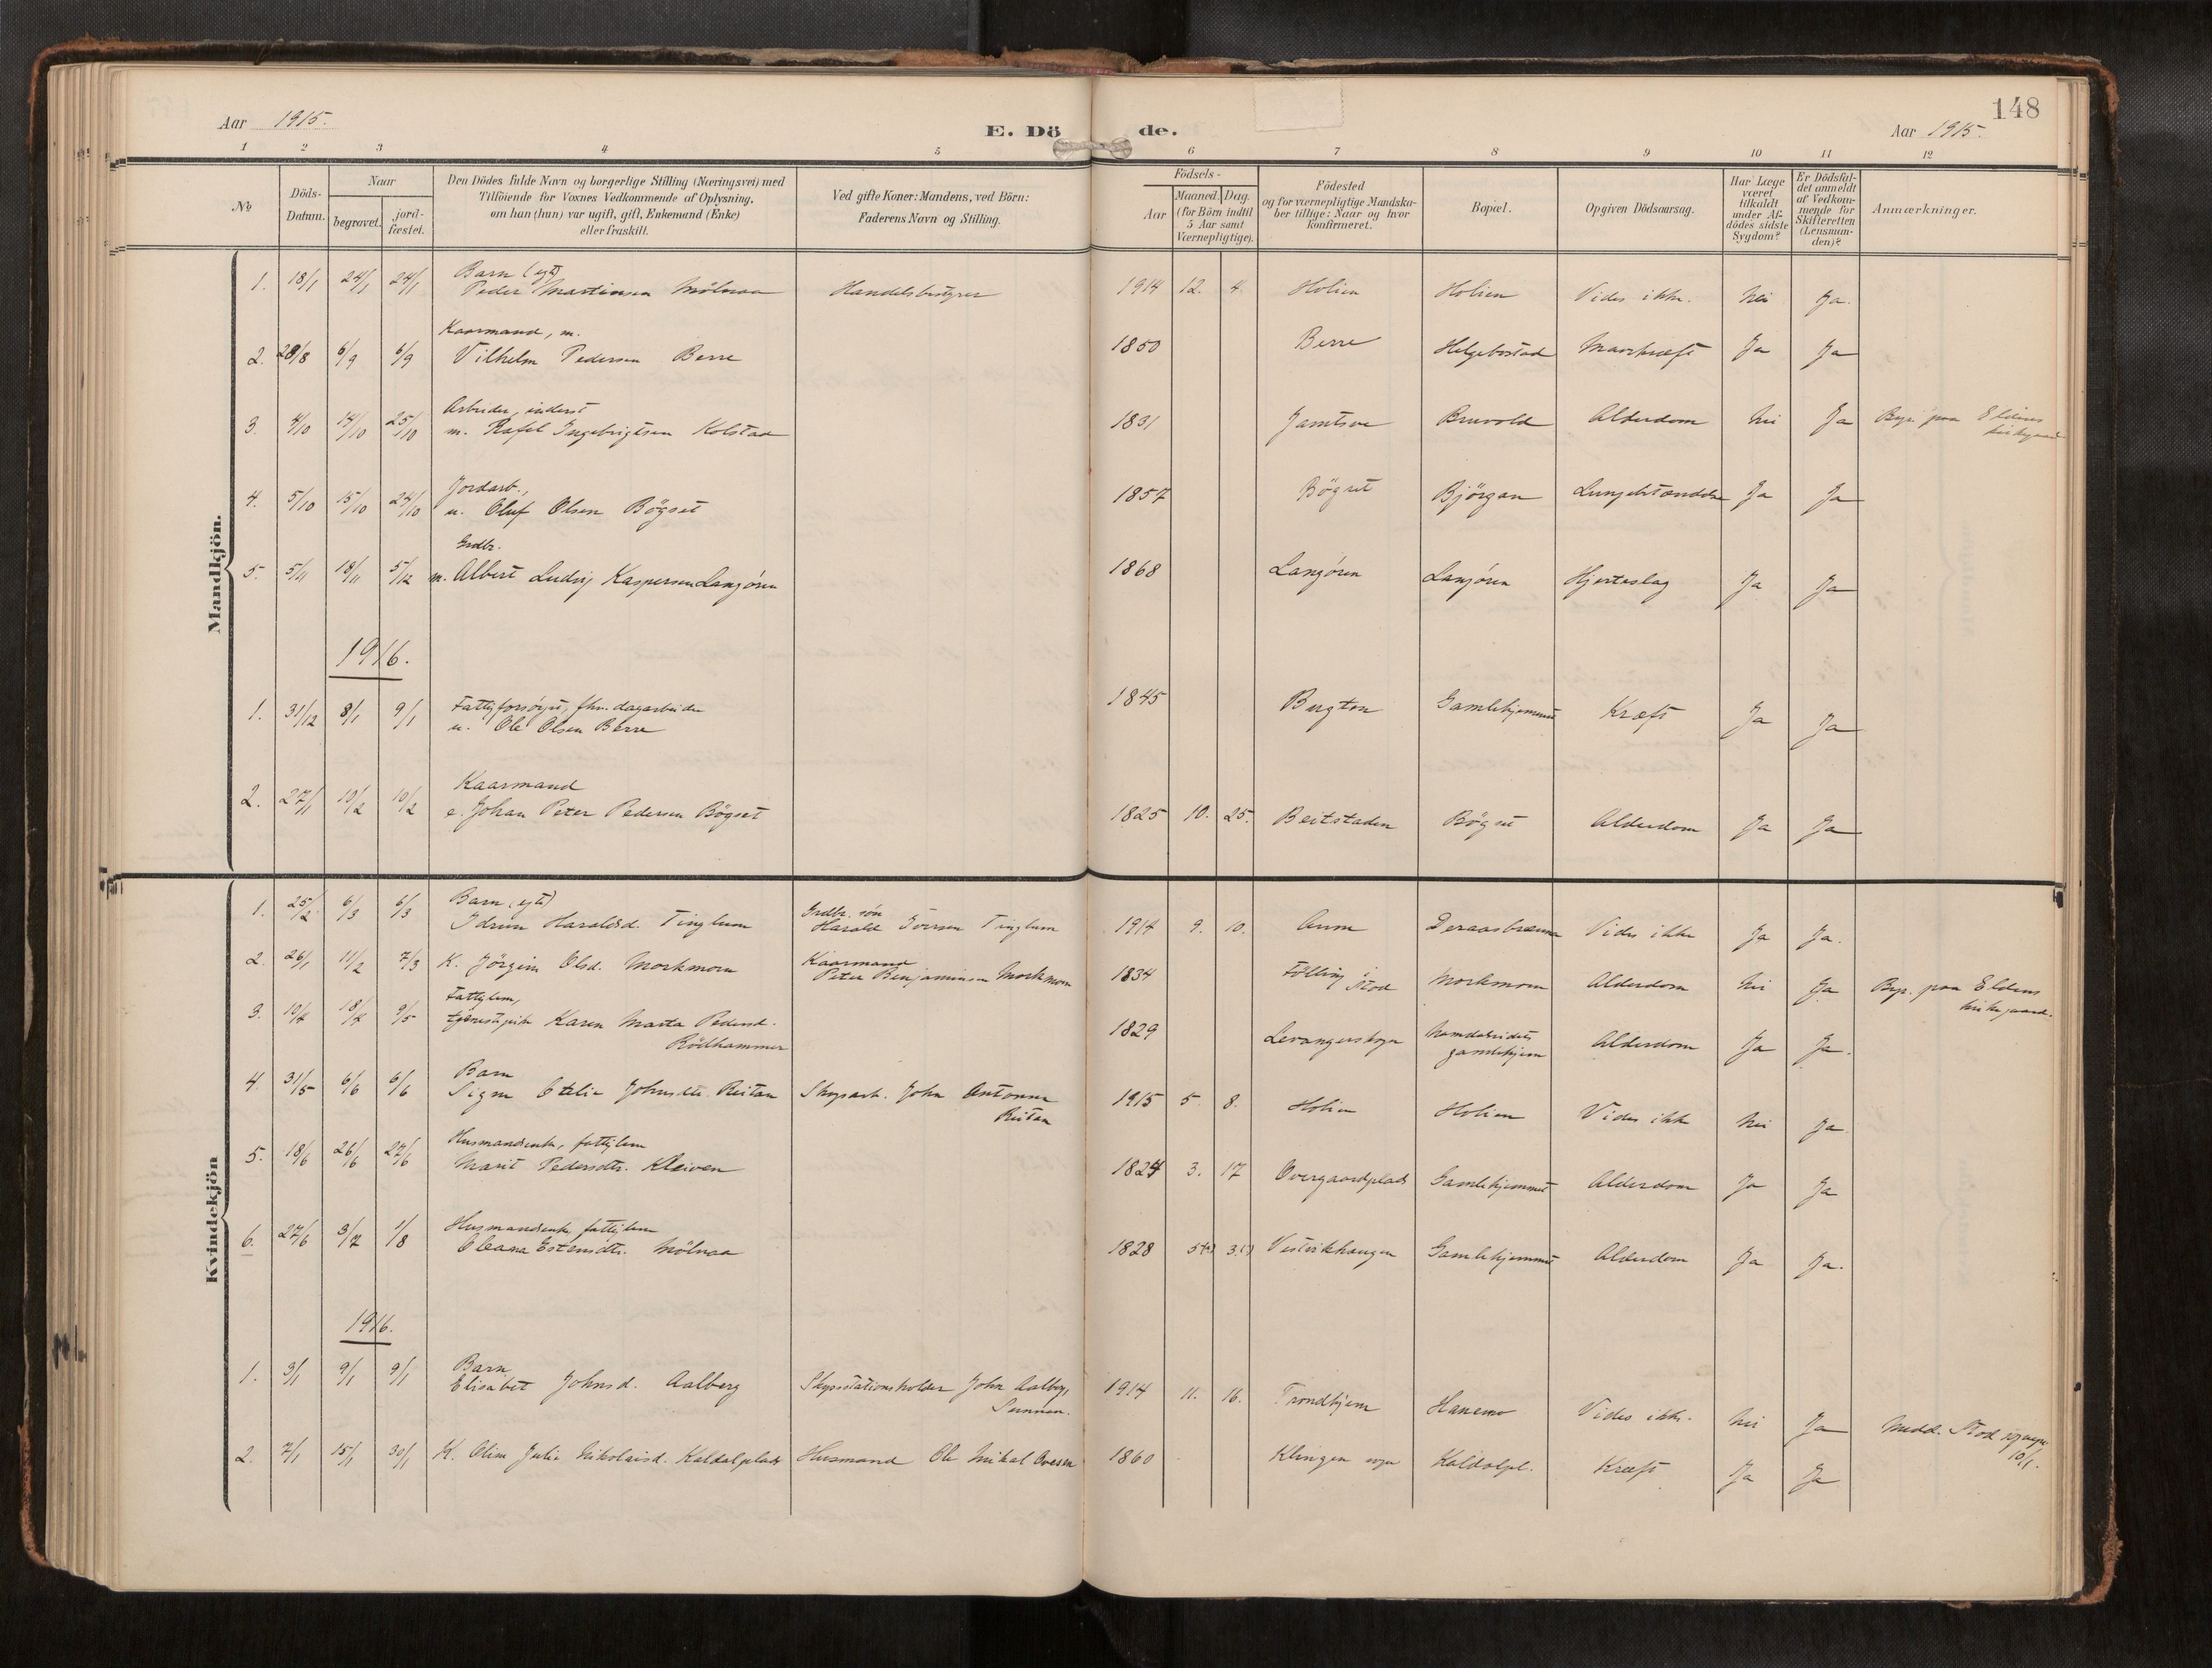 148
Aar 1915.
E. Döde.
Aar 1915.
1 2 3 4 5 6 7 8 9 10 11 12
No
Döds-Datum.
Naar
begravet.
jord-fæstet.
Den Dödes fulde Navn og borgerlige Stilling (Næringsvei) med
Tilföiende for Voxnes Vedkommende af Oplysning,
om han (hun) var ugift, gift, Enkemand (Enke)
eller fraskilt.
Ved gifte Koner: Mandens, ved Börn:
Faderens Navn og Stilling.
Födsels-
Aar
Maaned. Dag.
(for Börn indtil
5 Aar samt
Værnepligtige).
Födested
og for værnepligtige Mandska-
ber tillige: Naar og hvor
konfirmeret.
Bopæl.
Opgiven Dödsaarsag.
Har Læge
været
tilkaldt
under Af-
dödes sidste
Sygdom?
Er Dödsfal-
det anmeldt
af Vedkom-
mende for
Skifteretten
(Lensman-
den)?
Anmærkninger.
Mandkjön.
Barn (egte)
1. 18/1 24/1 24/1 Peder Martinsen Mölnaa Handelsbestyrer 1914 12. 4. Holien Holien Vides ikke. Nei Ja.
Kaarmand, m.
2. 28/8 6/9 6/9 Vilhelm Pedersen Berre 1850 Berre Helgebostad Mavekræft Ja Ja
Arbeider, inderst
3. 4/10 14/10 25/10 m. Rafel Ingebrigtsen Kolstad 1831 Jamtsve Bruvold Alderdom Nei Ja Begr. paa Eldens
kirkegaard
Jordarb.,
4. 5/10 15/10 24/10 u. Oluf Olsen Bögset 1857 Bögset Björgan Ja Ja
Grdbr.
5. 5/11 18/11 5/12 m. Albert Ludvig Kaspersen Langören 1868 Langören Langören Hjerteslag Ja Ja
1916.
Fattigforsörget, fhv. dagarbeider
1. 31/12 8/1 9/1 u. Ole Olsen Berre 1845 Bugten Gamlehjemmet Kræft Ja Ja
Kaarmand
2. 27/1 10/2 10/2 e. Johan Peter Pedersen Bögset 1825 10. 25. Beitstaden Bögset Alderdom Ja Ja
Kvindekjön
Barn (egte)
1. 25/2 6/3 6/3 Idrun Haraldsd. Tinglum Grdbr. sön
Harald Iversen Tinglum 1914 9. 10. Aunn Deraasbrænna Vides ikke Ja Ja.
2. 26/1 11/2 7/3 K. Jörgine Olsd. Morkmoen Kaarmand
Peter Benjaminsen Morkmoen 1834 Fölling Stod Morkmoen Alderdom Nei Ja Begr. paa Eldens
kirkegaard.
Fattiglem,
3. 10/4 18/4 9/5 tjenestepike Karen Marta Pedersd.
Rödhammer 1829 Levangerskogn Namdalseidets
gamlehjem Alderdom Ja Ja.
Barn
4. 31/5 6/6 6/6 Signe Otelie Johnsdtr. Reitan Skogsarb. John Antonsen
Reitan 1915 5. 8. Holien Holien Vides ikke Nei Ja
Husmandsenke, fattiglem
5. 18/6 26/6 27/6 Marit Pedersdtr. Kleiven 1824 3. 17 Overgaardplads Gamlehjemmet Alderdom Ja Ja
Husmandsenke, fattiglem
6. 27/6 3/7 1/8 Oleana Estensdtr. Mölnaa 1828 5(?) 3(?) Vestvikhaugen Gamlehjemmet Alderdom Ja Ja.
1916.
Barn
1. 3/1 9/1 9/1 Elisabet Johnsd. Aalberg Skysstationsholder John Aalberg,
Sunnan. 1914 11. 16. Trondhjem Hanemo Vides ikke. Nei Ja Medd. Stod sognepr.
10/1.
2. 7/1 15/1 30/1 K. Oline Julie Nikolaisd. Kaldalplads Husmand Ole Mikal Ovesen 1860 Klingen sogn Kaldalpl. Kræft Ja Ja